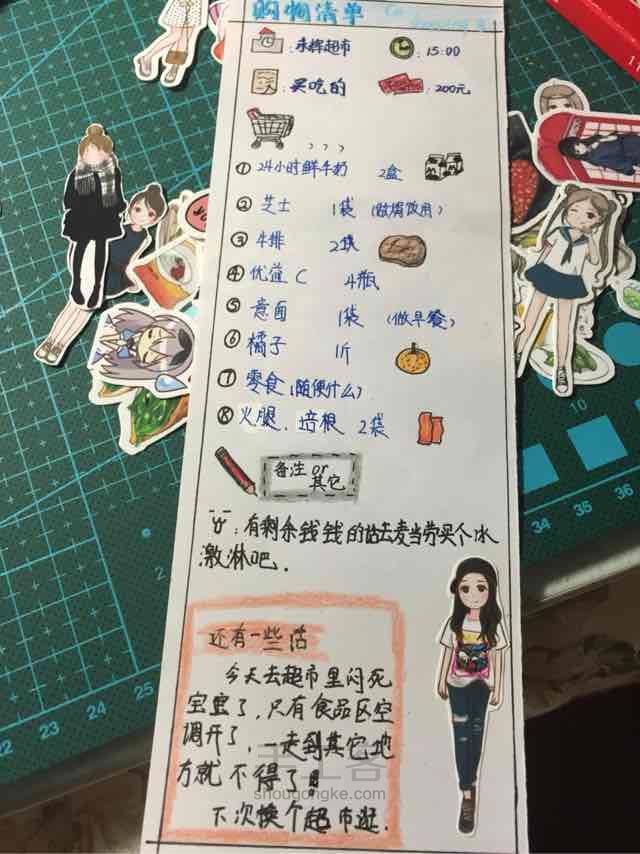 购物清单
:永辉超市 :15:00
:买吃的 :200元
, , ,
① 24小时鲜牛奶 2盒
② 芝士 1袋 (做焗饭用)
③ 牛排 2块
④ 优益C 4瓶
⑤ 意面 1袋 (做早餐)
⑥ 橘子 1斤
⑦ 零食(随便什么)
⑧ 火腿、培根 2袋
备注 or
其它
:有剩余钱钱的话去麦当劳买个冰
激淋吧.
还有一些话
今天去超市里闷死
宝宝了,只有食品区空
调开了,一走到其它地
方就不得了!
下次换个超市逛.
shougongke.com
22 23 24 25
10
34 35 36